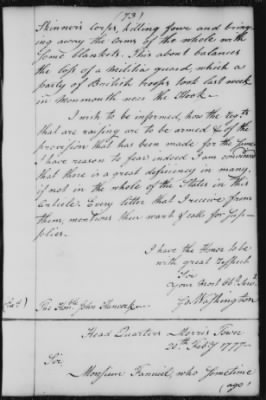 (73)
Skinner's Corps, killing four and bring-
ing away the Arms of the whole with
some blankets. This about balances
the loss of a militia guard, which a
party of British troops took last week
in Monmouth near the Hook.
I wish to be informed, how the regts
that are raising are to be armed & of the
provision that has been made for the same
I have reason to fear indeed I am convinced
that there is a great deficiency in many,
if not in the whole of the States in this
Article. Every letter that I receive from
them, mentions their want & calls for Sup-
plies.
I have the Honor to be
with great respect
Sir
Your Most Ob. Serv.
G. Washington
The Honble John Hancock
Head Quarters Morris Town
20th Feby 1777
Sir
Monsieur Faneuil, who sometime
(ago